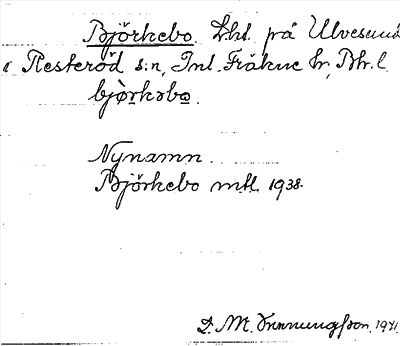 Björkebo. Lht. på Ulvesund
i Resteröd s:n, Inl. Fräkne hr, Bhr. l.
bjo̱rkəbo.
Nynamn.
Björkebo mtl. 1938.
D. M. 1941.